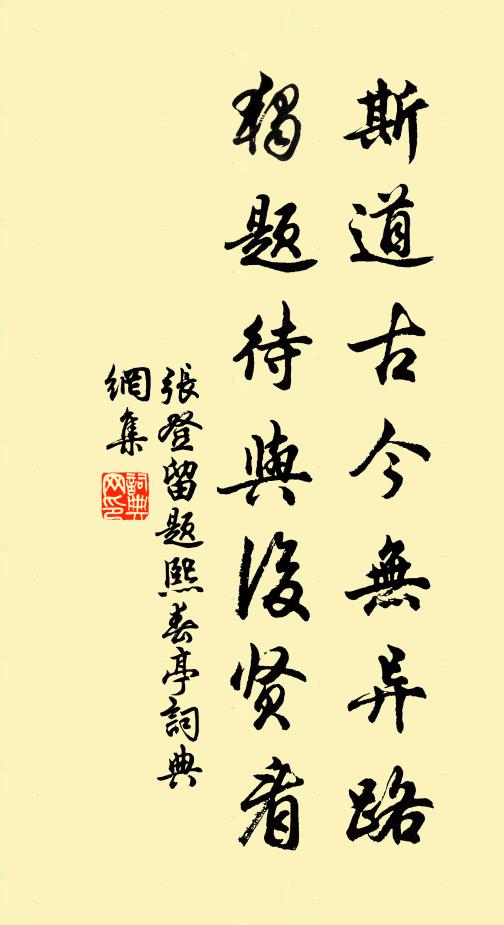 斯道古今無异路
獨題待與後贤看
張登留題熙春亭詞典
網集
詞典
网印